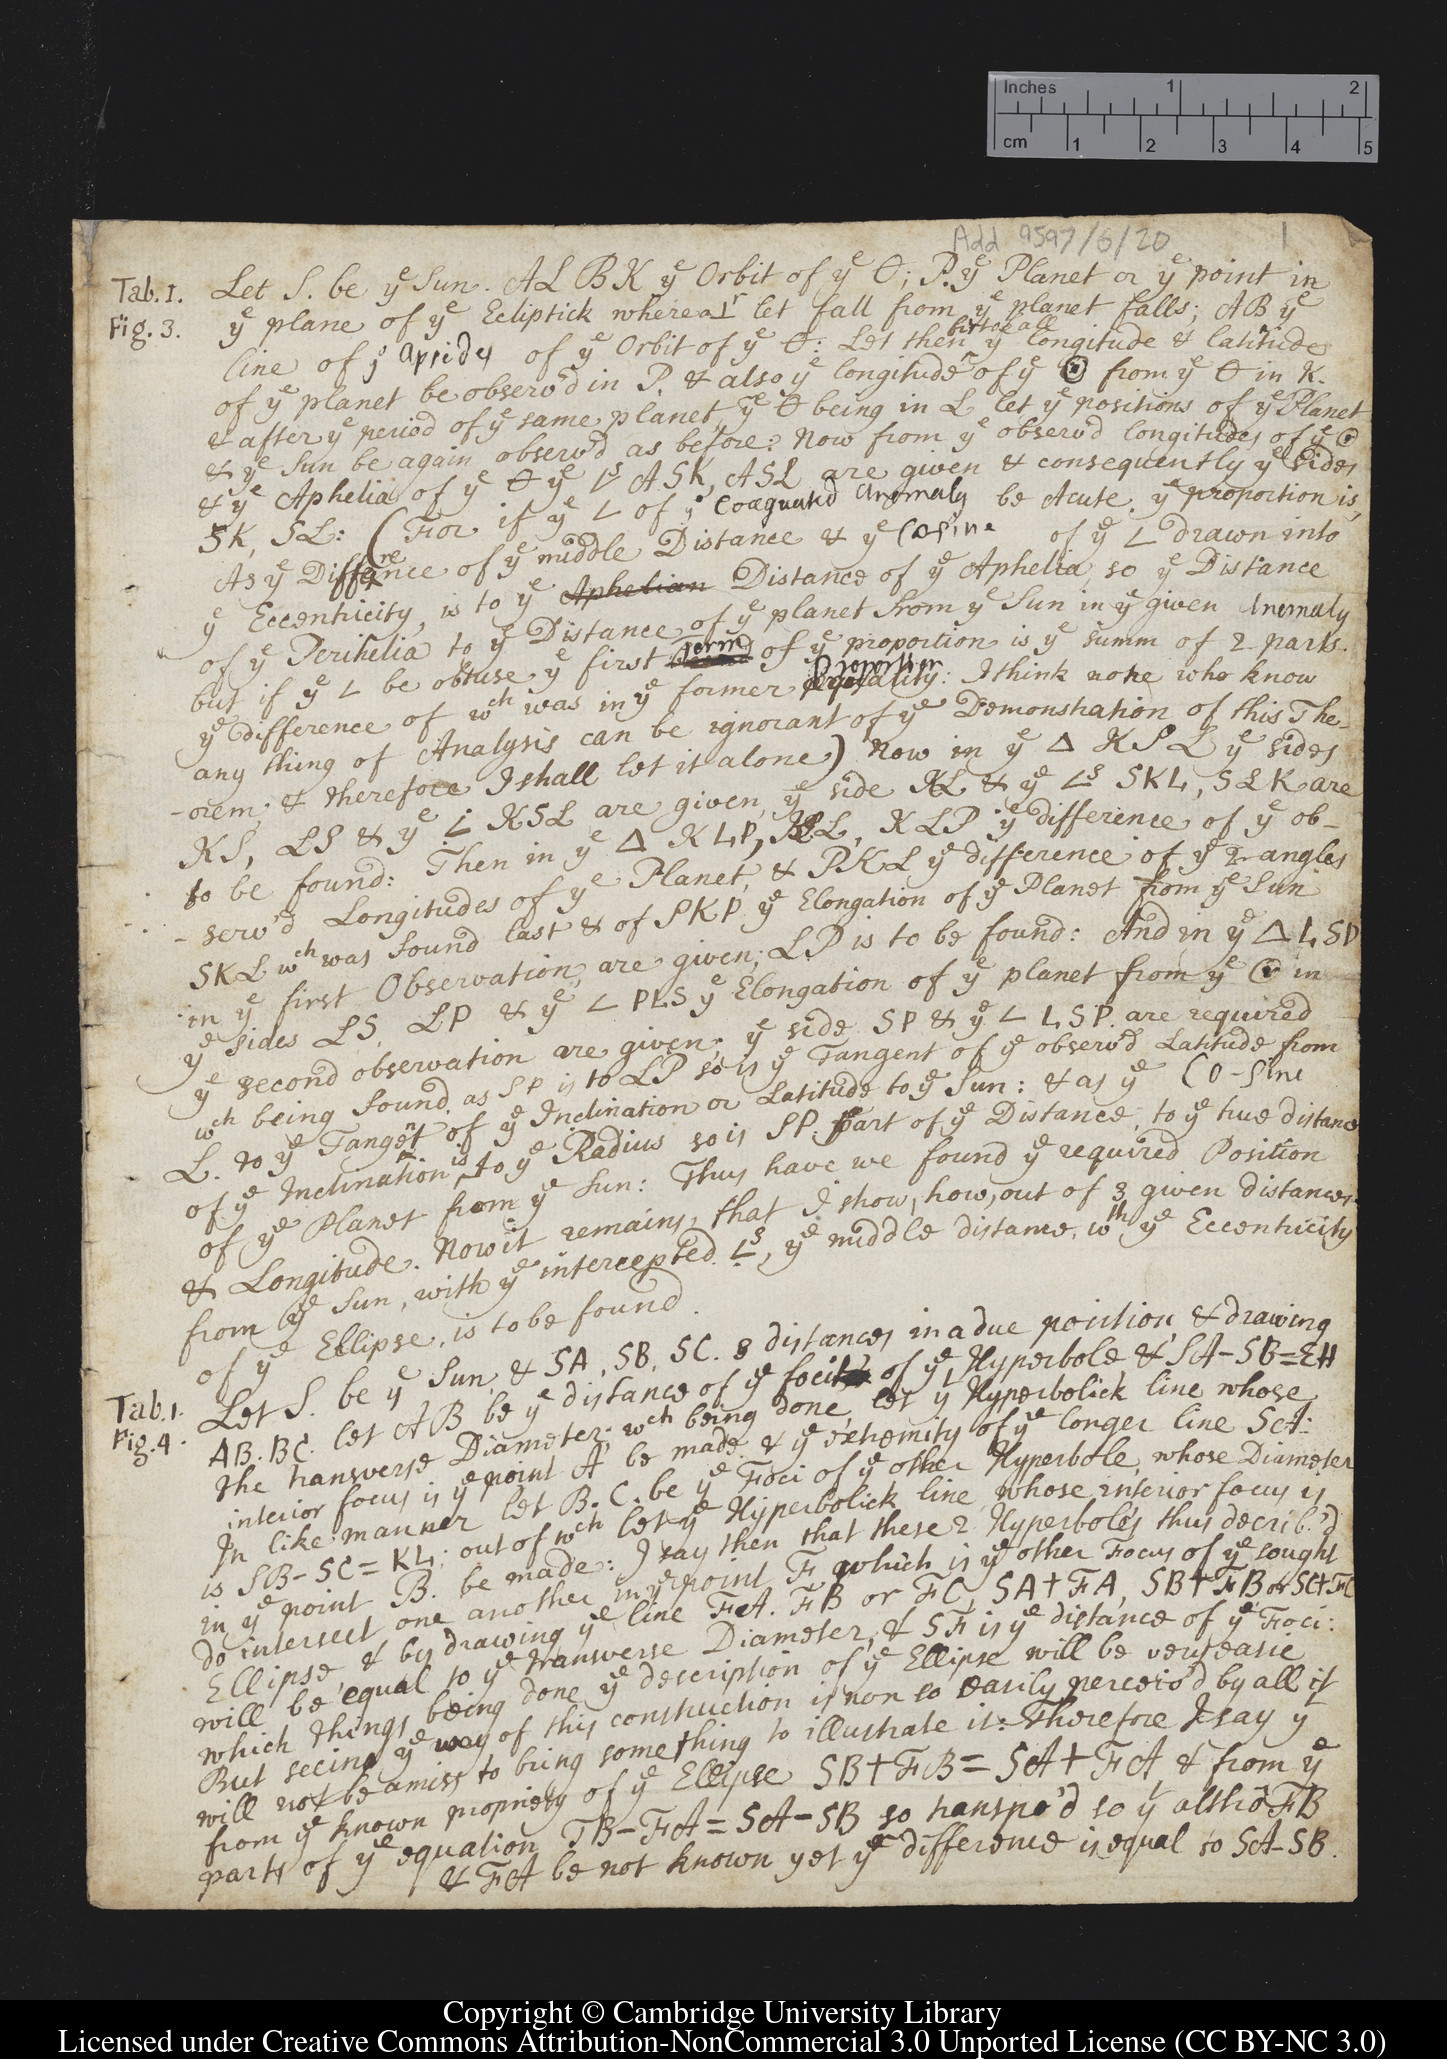 Inches 1 2
cm 1 2 3 4 5
Add 9597/6/20 1
Tab. 1. Let S. be yᵉ Sun. ALBK yᵉ Orbit of yᵉ ⊖; P. yᵉ Planet or yᵉ point in
Fig. 3. yᵉ plane of yᵉ Ecliptick where a ⊥ʳ let fall from yᵉ planet falls; AB yᵉ
line of yᵉ Apsides of yᵉ Orbit of yᵉ ⊖: Let then first of all yᵉ longitude & latitude
of yᵉ planet be observ'd in P. & also yᵉ longitude of yᵉ ☉ from yᵉ ⊖ in K.
& after yᵉ period of yᵉ same planet, yᵉ ⊖ being in L let yᵉ positions of yᵉ Planet
& yᵉ Sun be again observ'd as before: Now from yᵉ observ'd longitudes of yᵉ ☉
& yᵉ Aphelia of yᵉ ⊖ yᵉ ∠ˢ ASK, ASL are given & consequently yᵉ sides
SK, SL: (For if yᵉ ∠ of yᵉ Coæquated Anomaly be Acute, yᵉ proportion is,
As yᵉ Difference of yᵉ middle Distance & yᵉ Cosine of yᵉ ∠ drawn into
yᵉ Eccentricity, is to yᵉ Aphelian Distance of yᵉ Aphelia, so yᵉ Distance
of yᵉ Perihelia to yᵉ Distance of yᵉ planet from yᵉ Sun in yᵉ given Anomaly
but if yᵉ ∠ be obtuse yᵉ first term of yᵉ proportion is yᵉ summ of 2 parts.
yᵉ difference of wᶜʰ was in yᵉ former Proportion: I think none who know
any thing of Analysis can be ignorant of yᵉ Demonstration of this The-
-orem; & therefore I shall let it alone) Now in yᵉ Δ KSL yᵉ sides
KS, LS & yᵉ ∠ KSL are given, yᵉ side KL & yᵉ ∠ˢ SKL, SLK are
to be found: Then in yᵉ Δ KLP, KL, KLP yᵉ difference of yᵉ ob-
- serv'd Longitudes of yᵉ Planet, & PKL yᵉ difference of yᵉ 2 angles
SKL wᶜʰ was found last & of SKP yᵉ Elongation of yᵉ Planet from yᵉ Sun
in yᵉ first Observation, are given; LP is to be found: And in yᵉ Δ LSP
yᵉ sides LS, LP & yᵉ ∠ PLS yᵉ Elongation of yᵉ planet from yᵉ ☉ in
yᵉ second observation are given; yᵉ side SP & yᵉ ∠ LSP. are required
wᶜʰ being found, as SP is to LP so is yᵉ Tangent of yᵉ observ'd Latitude from
L. to yᵉ Tangēt of yᵉ Inclination or Latitude to yᵉ Sun: & as yᵉ Co-sine
of yᵉ Inclination is to yᵉ Radius so is SP. part of yᵉ Distance, to yᵉ true distance
of yᵉ Planet from yᵉ Sun: Thus have we found yᵉ required Position
& Longitude. Now it remains, that I show, how, out of 3 given distances
from yᵉ Sun, with yᵉ intercepted ∠ˢ, yᵉ middle distance, wᵗʰ yᵉ Eccentricity
of yᵉ Ellipse, is to be found.
Tab. 1. Let S. be yᵉ Sun & SA, SB, SC. 3 distances in a due position & drawing
Fig. 4. AB. BC. let AB be yᵉ distance of yᵉ foci of yᵉ Hyperbole & SA-SB=EH
the transverse Diameter: wᶜʰ being done, let yᵉ Hyperbolick line whose
interior focus is yᵉ point A be made & yᵉ extremity of yᵉ longer line SA:
In like manner let B. C. be yᵉ Foci of yᵉ other Hyperbole, whose Diameter
is SB-SC=KL; out of wᶜʰ let yᵉ Hyperbolick line, whose interior focus is
in yᵉ point B. be made: I say then that these 2 Hyperboles thus decrib'd
do intersect one another in yᵉ point F which is yᵉ other Focus of yᵉ sought
Ellipse & by drawing yᵉ line FA. FB or FC, SA+FA, SB+FB or SC+FC
will be equal to yᵉ transverse Diameter, & SF is yᵉ distance of yᵉ Foci:
which things being done yᵉ description of yᵉ Ellipse will be very easie
But seeing yᵉ way of this construction is non so easily perceiv'd by all it
will not be amiss to bring something to illustrate it: Therefore I say yᵗ
from yᵉ known propriety of yᵉ Ellipse SB+FB=SA+FA & from yᵉ
parts of yᵉ equation FB-FA=SA-SB so transpo'd so yᵗ altho FB
& FA be not known yet yᵉ difference is equal to SA-SB.
Copyright © Cambridge University Library
Licensed under Creative Commons Attribution-NonCommercial 3.0 Unported License (CC BY-NC 3.0)